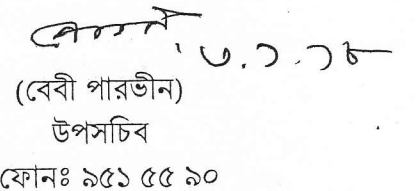 ৩.১.১৮
(বেবী পারভীন)
উপসচিব
ফোনঃ ৯৫১ ৫৫ ৯০